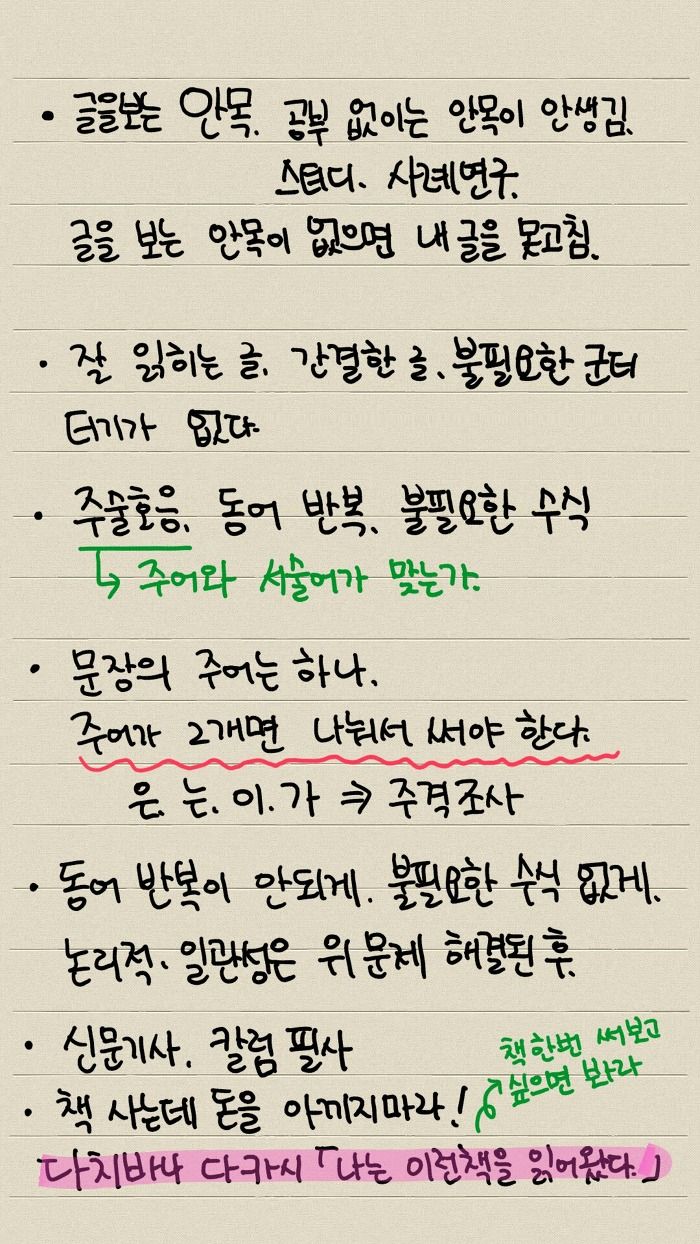 • 글을보는 안목. 공부 없이는 안목이 안생김.
스터디. 사례연구.
글을 보는 안목이 없으면 내글을 못고침.
• 잘 읽히는 글. 간결한 글. 불필요한 군더
더기가 없다.
• 주술호응. 동어 반복. 불필요한 수식
↳ 주어와 서술어가 맞는가.
• 문장의 주어는 하나.
주어가 2개면 나눠서 써야 한다.
은. 는. 이. 가 ⇒ 주격조사
• 동어 반복이 안되게. 불필요한 수식 없게.
논리적. 일관성은 위 문제 해결된 후.
• 신문기사. 칼럼 필사
책한번 써보고
싶으면 봐라
• 책 사는데 돈을 아끼지마라!
다치바나 다카시 「나는 이런책을 읽어왔다.」